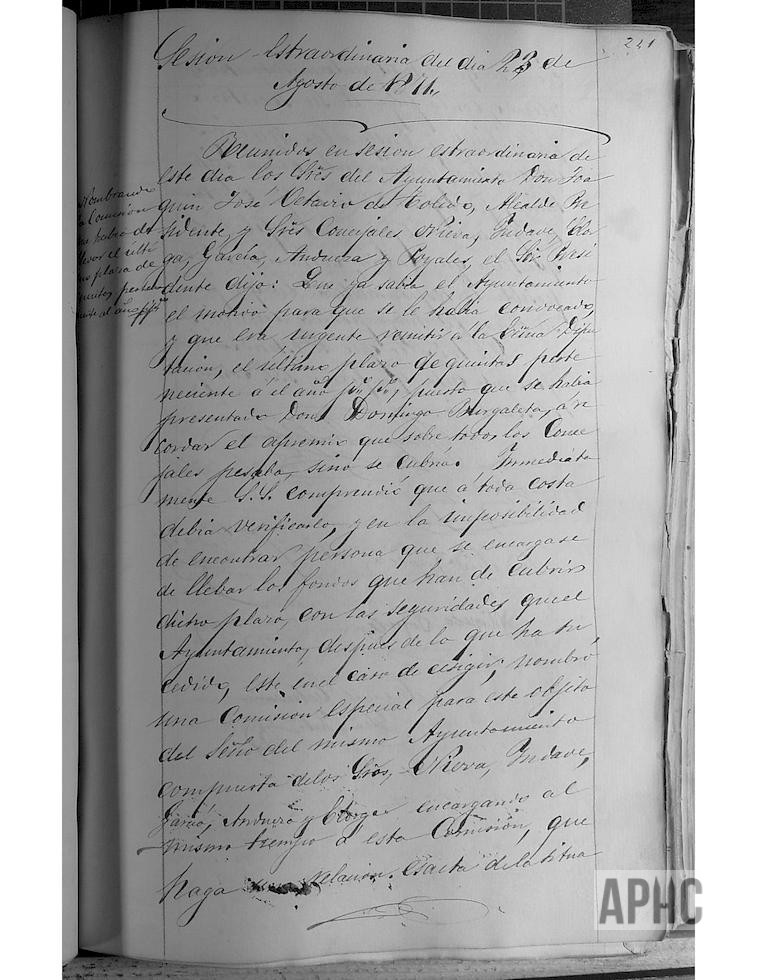 221
Sesion estraordinaria del dia 23 de
Agosto de
Reunidos en sesion estraordinaria de
este dia los Sres del Ayuntamiento Don Joa
quin Jose Octavio de Toledo, Alcalde Pre
sidente, y Sres Concejales Rueva, Yndave, Elor
ga, Garcia, Andueza y Royales, el Sor Presi
dente dijo: Que ya sabia el Ayuntamiento
el motivo para que se le habia convocado,
y que era urgente remitir á la Exma Dipu
tacion, el último plazo de quintas perte
neciente á el año pro po, puesto que se habia
presentado Don Domingo Burgaleta, á re
cordar el apremio que sobre todos los Conce
jales pesaba, sino se cubria. Ynmediata
mente S.S. comprendió que á toda costa
debia verificarlo, y en la imposibilidad
de encontrar persona que se encargase
de llebar los fondos que han de cubrir
dicho plazo, con las seguridades que el
Ayuntamiento, despues de lo que ha su
cedido, esta en el caso de ecsigir, nombró
una Comision especial para este objeto
del Seno del mismo Ayuntamiento
compuesta de los Sres, Rueva, Yndave,
Garcia, Andueza y Elorga encargando al
mismo tiempo á esta Comision, que
haga relacion esacta de la situa
Nombrando
la Comision
que habia de
llevar el ulti
mo plazo de
quintas perte
neciente al año ppdo
APHC